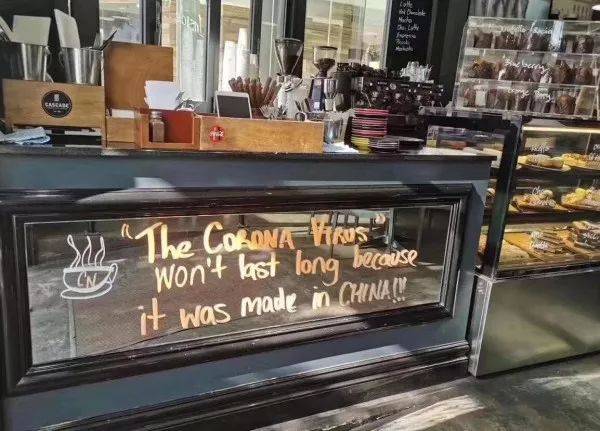 Latte
Hot Chocolate
Mocha
Chai Latte
Espresso
Piccolo
Macchiato
CASCADE
"The CORONA VIRUS"
won't last long because
it was made in CHINA!!!
CN